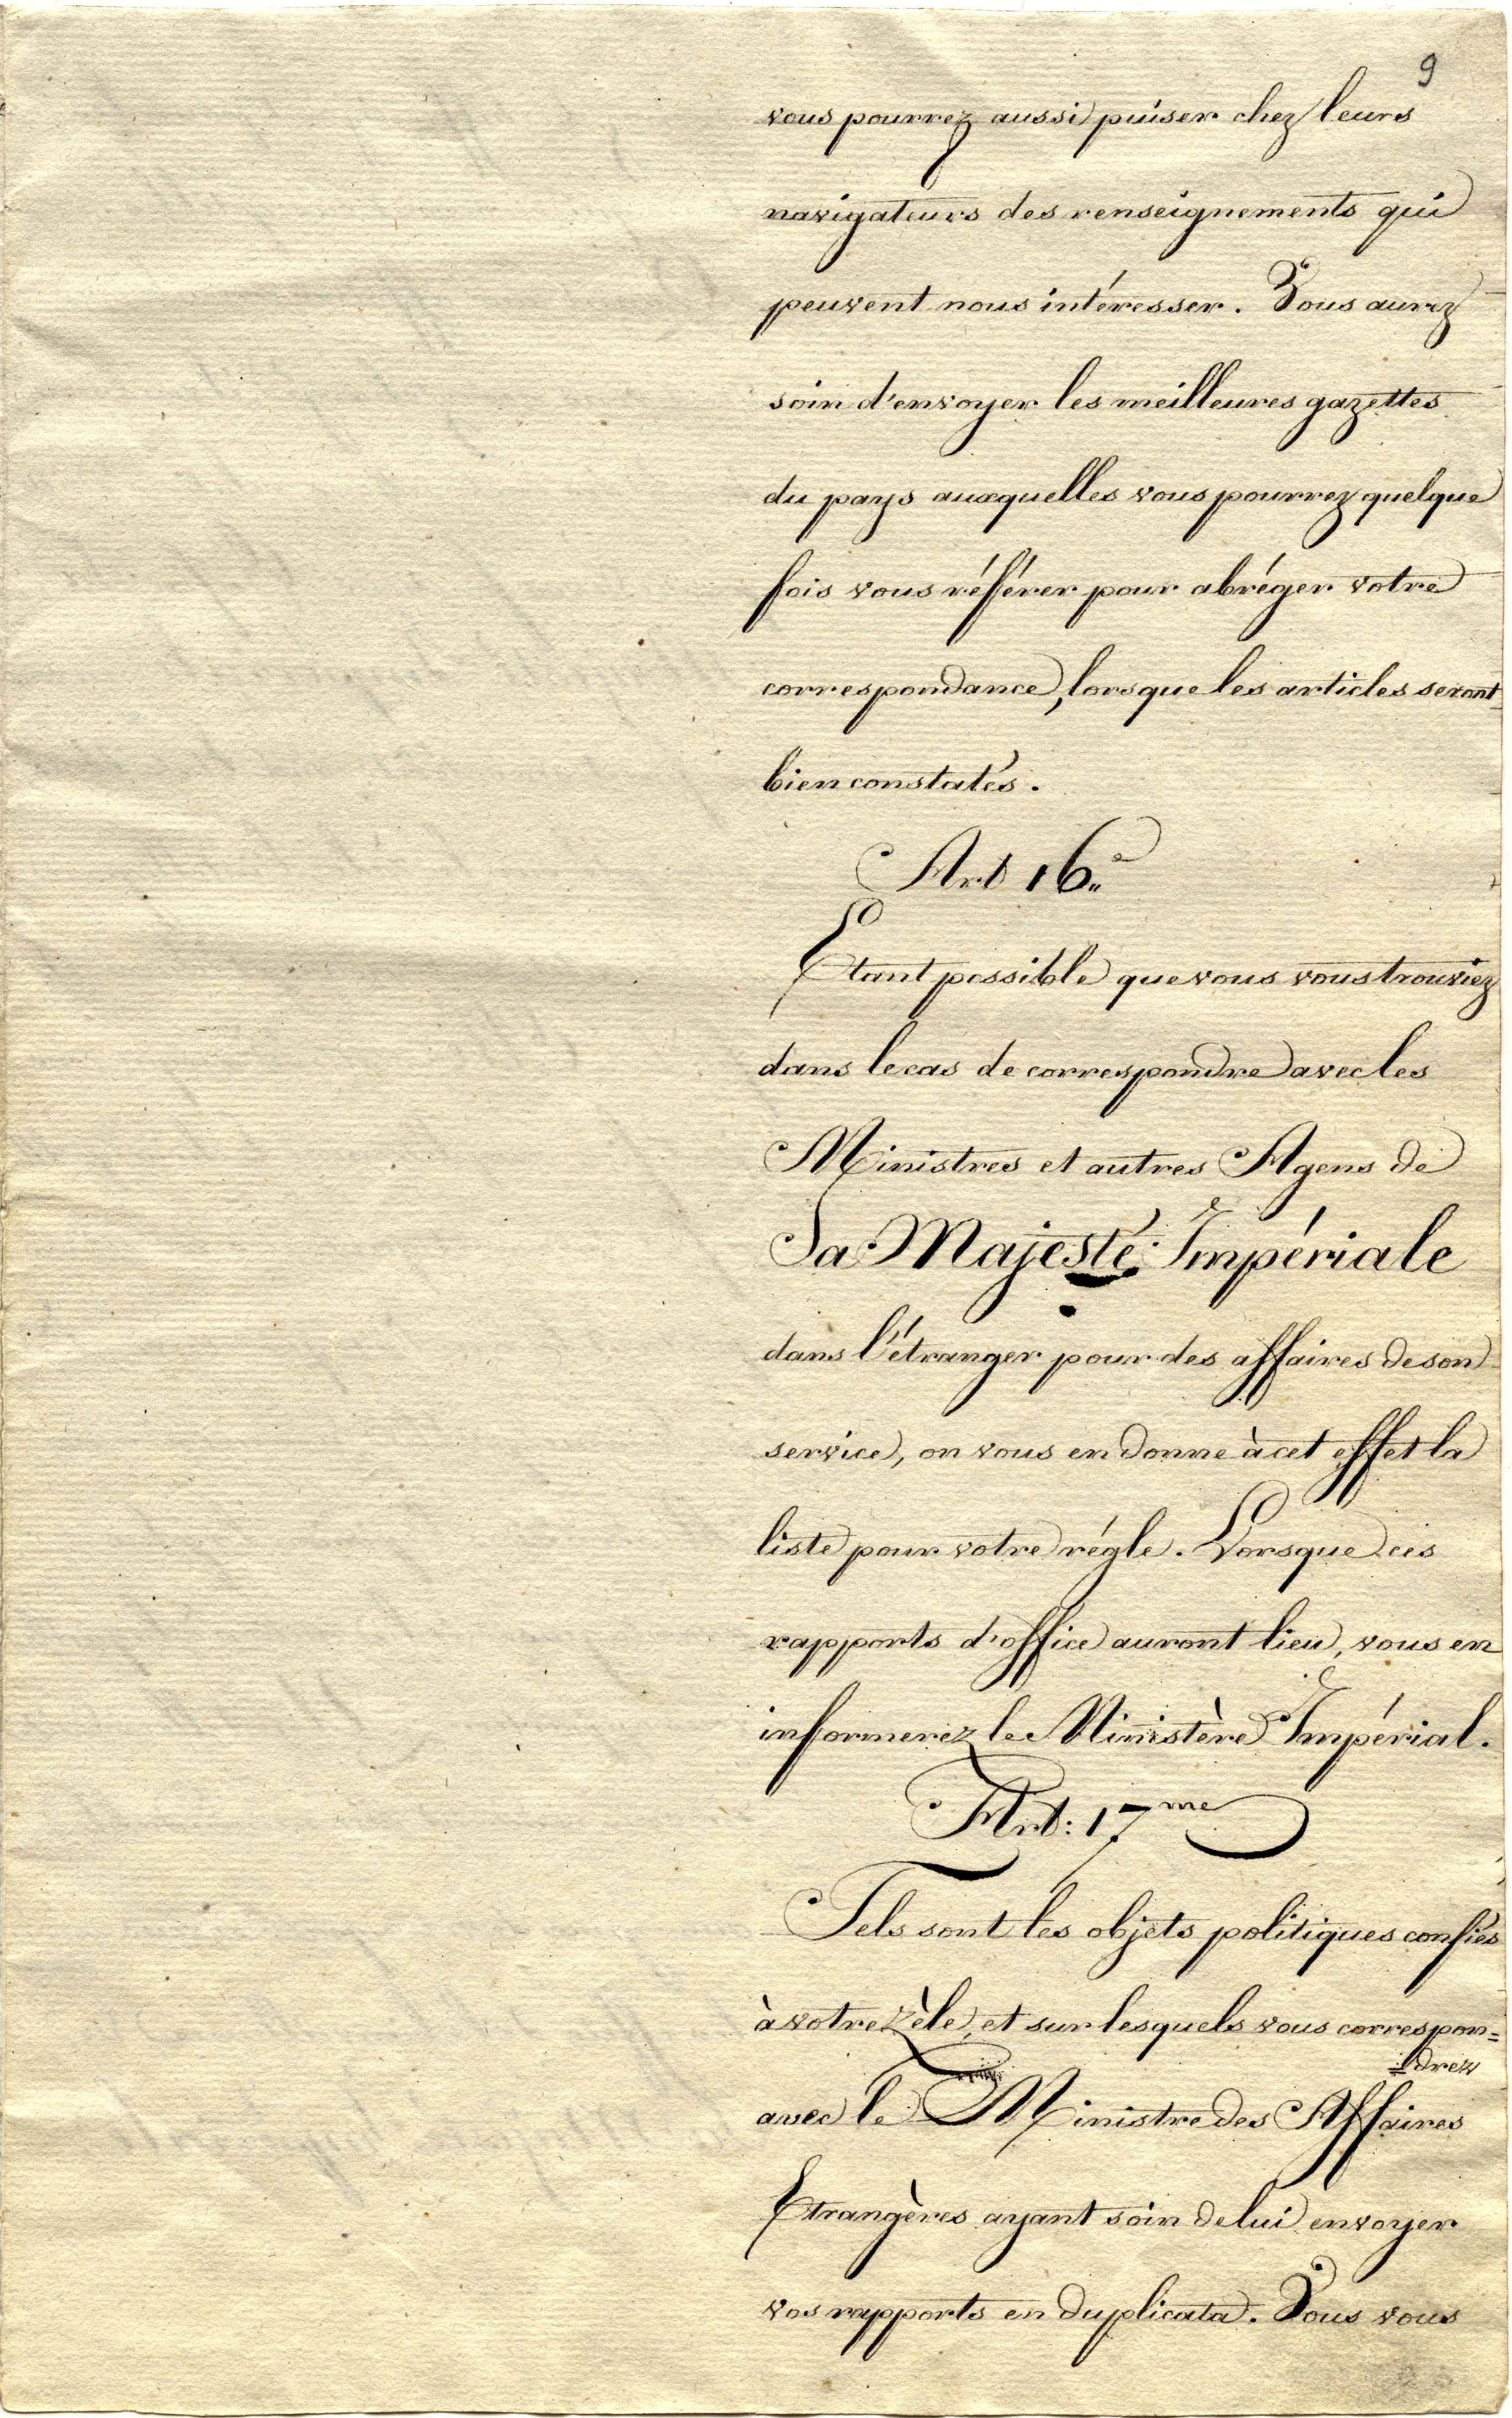 9
vous pourrez aussi puiser chez leurs
navigateurs des renseignements qui
peuvent nous intéresser. Vous aurez
soin d'envoyer les meilleures gazettes
du pays auxquelles vous pourrez quelque
fois vous référer pour abréger votre
correspondance, lorsque les articles seront
bien constatés.
Art 16.e
Etant possible que vous vous trouviez
dans le cas de correspondre avec les
Ministres et autres Agens de
Sa Majesté Impériale
dans l'étranger pour des affaires de son
service, on vous en donne à cet effet la
liste pour votre régle. Lorsque ces
rapports d'office auront lieu, vous en
informerez le Ministère Impérial.
Art: 17me
Tels sont les objets politiques confiés
à votre zèle, et sur lesquels vous correspon=
=drez
avec le Ministre des Affaires
Etrangères ayant soin de lui envoyer
vos rapports en duplicata. Vous vous